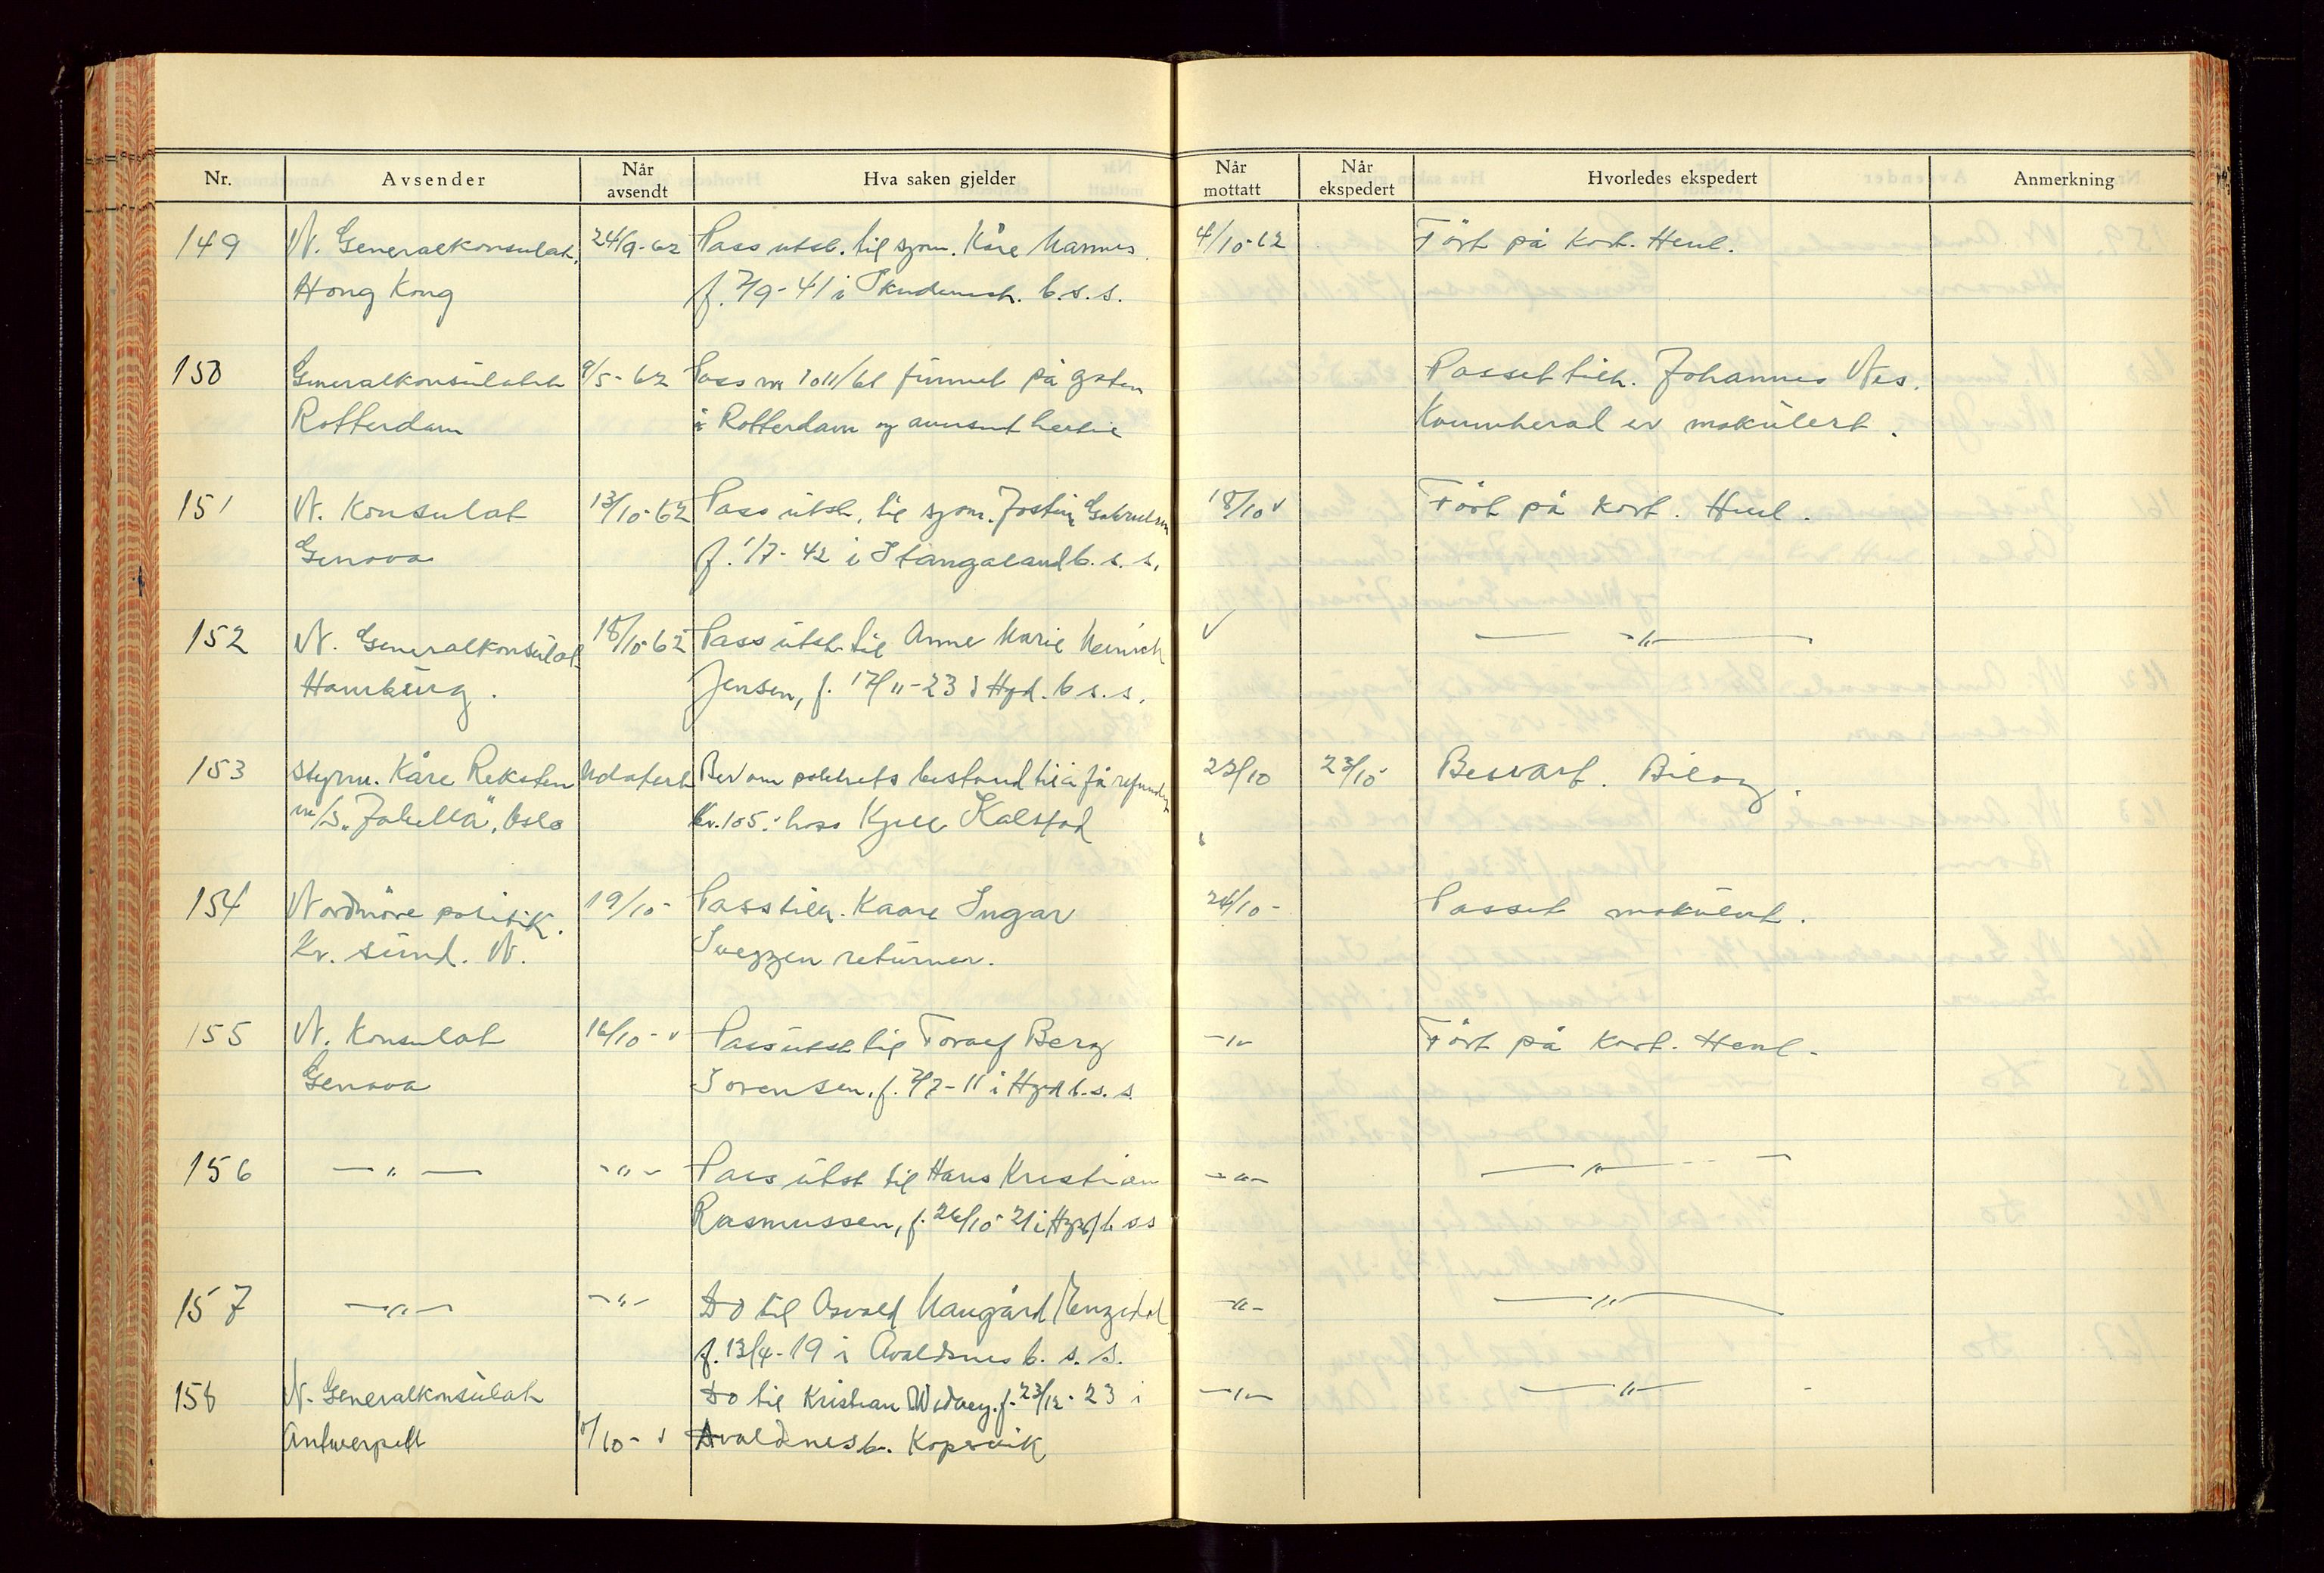 Nr. Avsender Når avsendt Hva saken gjelder Når mottatt Når ekspedert Hvorledes ekspedert Anmerkning
149 N. Generalkonsulat, 24/9-62 Pass utst. til sjøm. Kåre Mannes 4/10-62 Fört på kort. Henl.
Hong Kong f. 7/9-41 i Skudenesh. b.s.s.
150 Generalkonsulatet 9/5-62 Pass nr 1011/61 funnet på gaten Passet tilh. Johannes Nes.
Rotterdam i Rotterdam og avsendt hertil er makulert.
151 N. Konsulat 13/10-62 Pass utst. til sjøm. Jostein Gabrielsen 18/10 Fört på kort. Henl.
Genova f. 1/7-42 i Stangaland b.s.s.
152 N. Generalkonsulat 18/10-62 Pass utst. til Anne Marie Meinich — " —
Hamburg. Jensen, f. 17/11-23 i Hgd. b s.s.
153 Styrm. Kåre Reksten Udatert Ber om politiets bistand til å få refundert 22/10 23/10 Besvart. Bilag.
m/s. "Jabella", Oslo kr. 105.- hoss Kjell Kalstad
154 Nordmöre politik. 19/10- Pass tilh. Kaare Ingar 24/10- Passet makulert.
Kr. sund. N. returner.
155 N. Konsulat 16/10- Pass utst til Toralf Berg - " - Fört på kort. Henl.
Genova Sorensen, f. 7/7-11 i Hgd b.s.s.
156 — " — - " - Pass utst til Hans Kristian - " - — " —
Rasmussen, f. 26/10-21 i Hgsd b ss
157 — " — - " - Do til Osvald Haugård - " - — " —
f. 13/4-19 i Avaldsnes b. s. s.
158 N. Generalkonsulat Do til Kristian f. 23/12-23 i - " - — " —
Antwerpen /10- Avaldsnes b. Kopervik